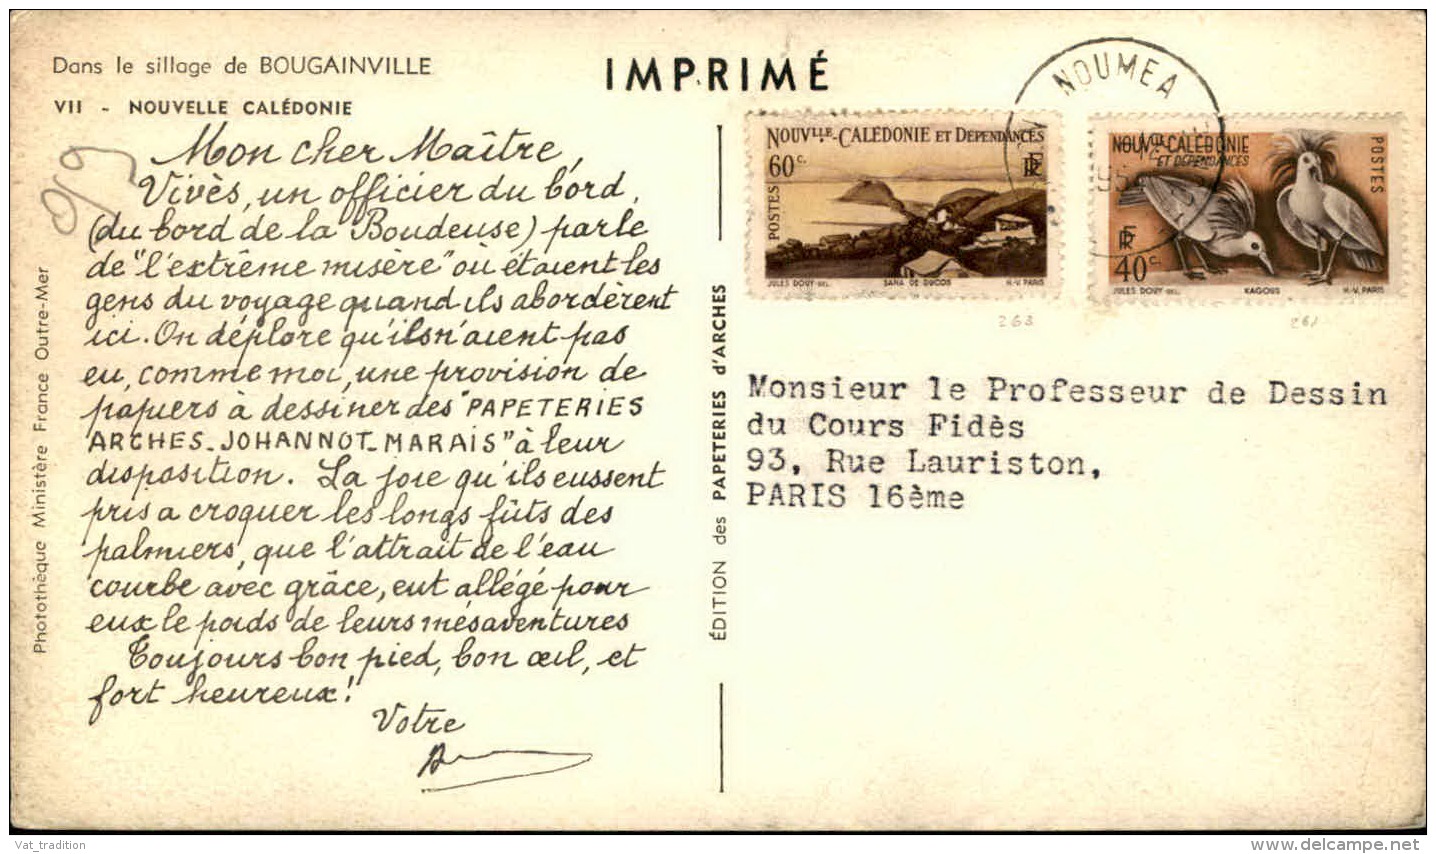 Dans le sillage de BOUGAINVILLE
IMPRIMÉ
VII - NOUVELLE CALÉDONIE
Mon cher Maître,
Vivès, un officier du bord,
(du bord de la Boudeuse) parle
de "l'extrême misère" où étaient les
gens du voyage quand ils abordèrent
ici. On déplore qu'ils n'aient pas
eu, comme moi, une provision de
papiers à dessiner des "PAPETERIES
ARCHES-JOHANNOT-MARAIS" à leur
disposition. La joie qu'ils eussent
pris a croquer les longs fûts des
palmiers, que l'attrait de l'eau
courbe avec grâce, eut allégé pour
eux le poids de leurs mésaventures
Toujours bon pied, bon œil, et
fort heureux!
Votre
Photothèque Ministère France Outre-Mer
ÉDITION des PAPETERIES d'ARCHES
NOUMEA
195
NOUVLLE-CALÉDONIE ET DÉPENDANCES
60c.
RF
POSTES
JULES DOUY-DEL.
SANA DE DUCOS
H-V. PARIS
NOUVLLE-CALÉDONIE
ET DÉPENDANCES
POSTES
RF
40c.
JULES DOUY-DEL.
KAGOUS
H-V. PARIS
263
261
Monsieur le Professeur de Dessin
du Cours Fidès
93, Rue Lauriston,
PARIS 16ème
Vat_tradition
delcampe.net